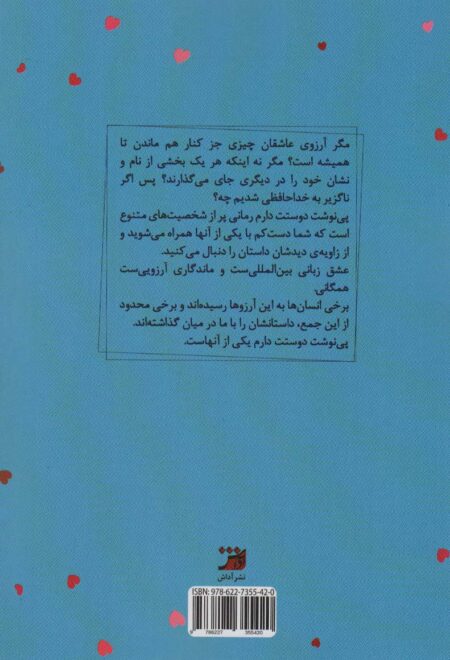 مگر آرزوی عاشقان چیزی جز کنار هم ماندن تا
همیشه است؟ مگر نه اینکه هر یک بخشی از نام و
نشان خود را در دیگری جای می‌گذارند؟ پس اگر
ناگزیر به خداحافظی شدیم چه؟
پی‌نوشت دوستت دارم رمانی پر از شخصیت‌های متنوع
است که شما دست‌کم با یکی از آنها همراه می‌شوید و
از زاویه‌ی دیدشان داستان را دنبال می‌کنید.
عشق زبانی بین‌المللی‌ست و ماندگاری آرزویی‌ست
همگانی.
برخی انسان‌ها به این آرزوها رسیده‌اند و برخی محدود
از این جمع، داستانشان را با ما در میان گذاشته‌اند.
پی‌نوشت دوستت دارم یکی از آنهاست.
نشر آداش
ISBN: 978-622-7355-42-0
9 786227 355420